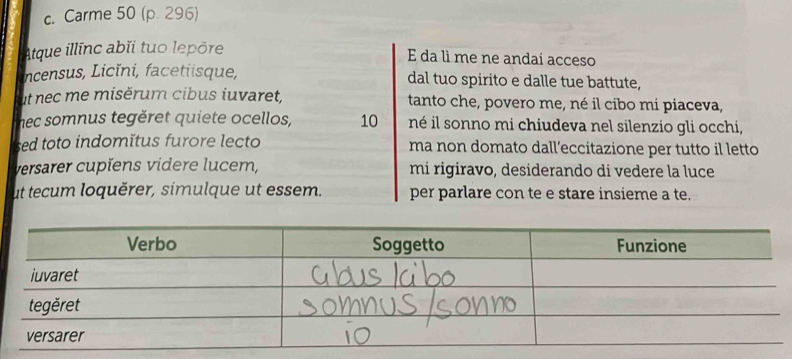 c. Carme 50 (p. 296)
Atque illinc abĭi tuo lepōre
incensus, Licĭni, facetiisque,
ut nec me misĕrum cibus iuvaret,
nec somnus tegĕret quiete ocellos,
sed toto indomĭtus furore lecto
versarer cupĭens videre lucem,
ut tecum loquĕrer, simulque ut essem.
E da lì me ne andai acceso
dal tuo spirito e dalle tue battute,
tanto che, povero me, né il cibo mi piaceva,
10 né il sonno mi chiudeva nel silenzio gli occhi,
ma non domato dall'eccitazione per tutto il letto
mi rigiravo, desiderando di vedere la luce
per parlare con te e stare insieme a te.
Verbo Soggetto Funzione
iuvaret cibus/cibo
tegĕret somnus/sonno
versarer io